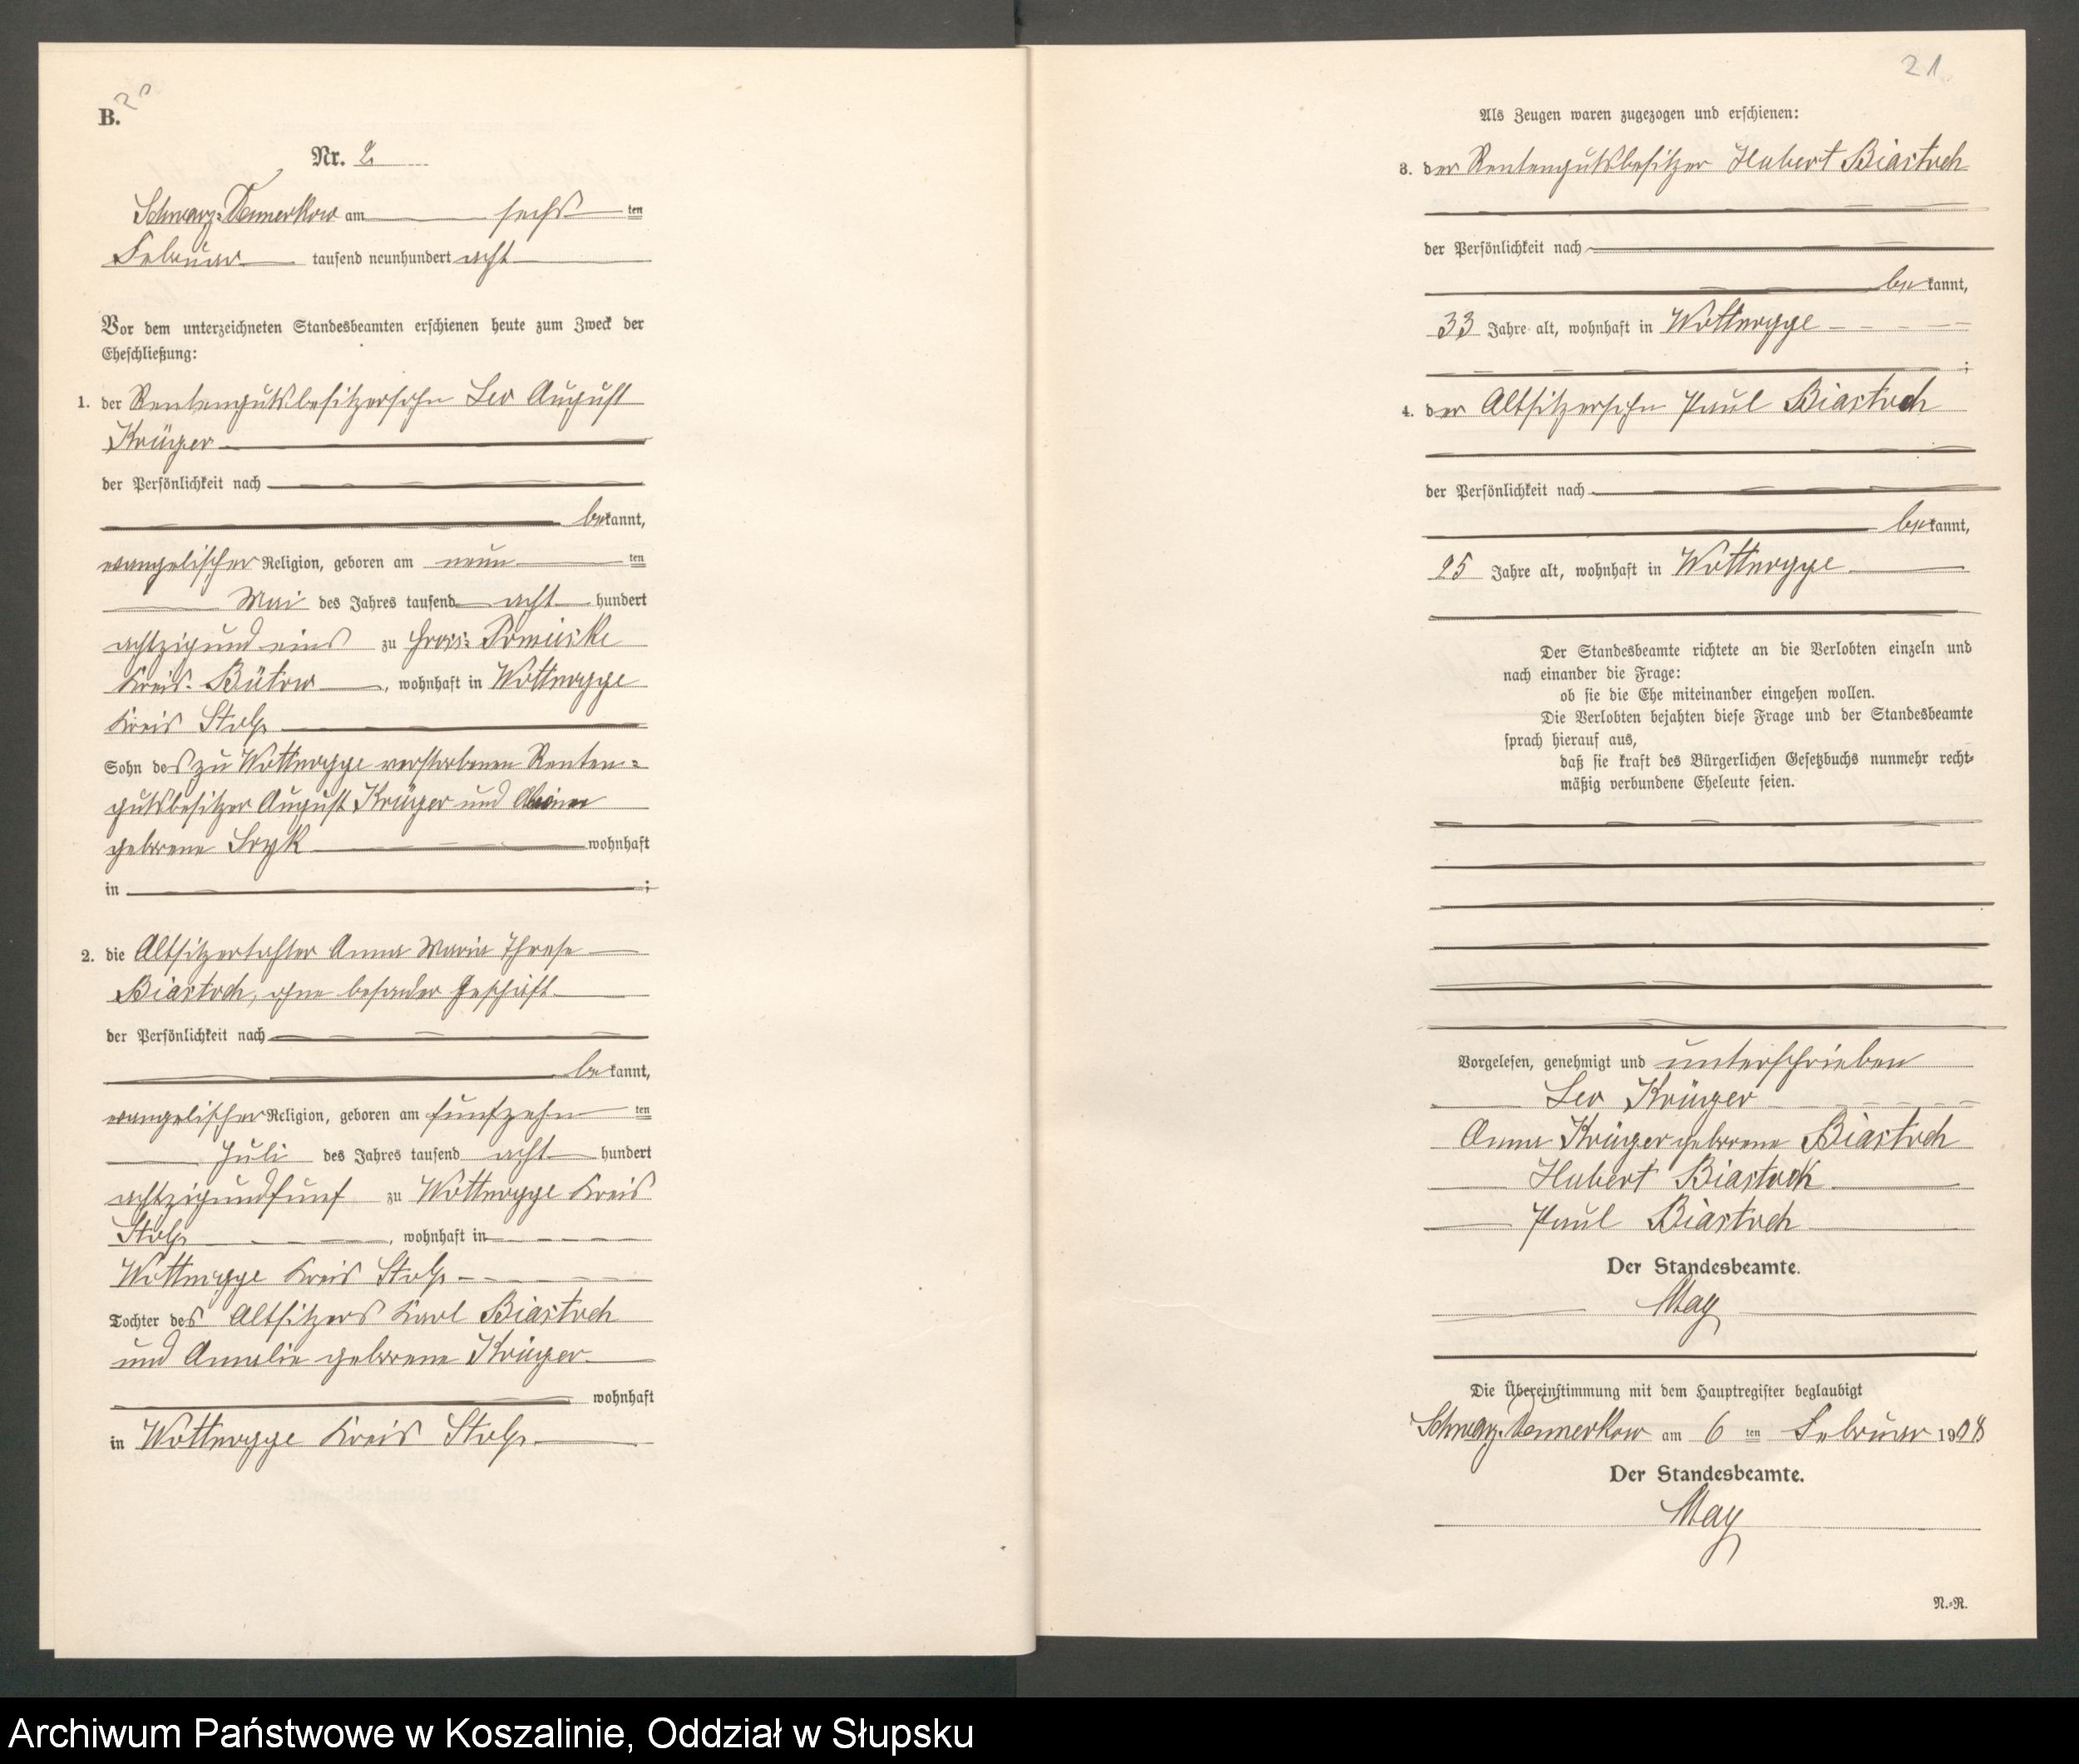 B. 20
Nr. 2
Schwarz-Damerkow am sechs ten
Februar tausend neunhundert acht
Vor dem unterzeichneten Standesbeamten erschienen heute zum Zweck der
Eheschließung:
1. der Rentengutsbesitzersohn Leo August
Krüger
der Persönlichkeit nach
bekannt,
evangelischer Religion, geboren am neun ten
Mai des Jahres tausend acht hundert
achtzigundeins zu Gross-Pomeiske
Kreis Bütow, wohnhaft in Wottnogge
Kreis Stolp
Sohn des zu Wottnogge verstorbenen Renten-
gutsbesitzer August Krüger und
geborene wohnhaft
in ;
2. die Altsitzertochter Anna Maria Therese
Biastoch, ohne besonder Geschäft
der Persönlichkeit nach
bekannt,
evangelischer Religion, geboren am fünfzehn ten
Juli des Jahres tausend acht hundert
achtzigundfünf zu Wottnogge Kreis
Stolp, wohnhaft in
Wottnogge Kreis Stolp
Tochter des Altsitzers Karl Biastoch
und Amalie geborene Krüger
wohnhaft
in Wottnogge Kreis Stolp
21
Als Zeugen waren zugezogen und erschienen:
3. der Rentengutsbesitzer Hubert Biastoch
der Persönlichkeit nach
bekannt,
33 Jahre alt, wohnhaft in Wottnogge
;
4. der Altsitzersohn Paul Biastoch
der Persönlichkeit nach
bekannt,
25 Jahre alt, wohnhaft in Wottnogge
Der Standesbeamte richtete an die Verlobten einzeln und
nach einander die Frage:
ob sie die Ehe miteinander eingehen wollen.
Die Verlobten bejahten diese Frage und der Standesbeamte
sprach hierauf aus,
daß sie kraft des Bürgerlichen Gesetzbuchs nunmehr recht-
mäßig verbundene Eheleute seien.
Vorgelesen, genehmigt und unterschrieben
Leo Krüger
Anna Krüger geborene Biastoch
Hubert Biastock
Paul Biastoch
Der Standesbeamte.
May
Die Übereinstimmung mit dem Hauptregister beglaubigt
Schwarz-Damerkow am 6 ten Februar 1908
Der Standesbeamte.
May
N.-R.
Archiwum Państwowe w Koszalinie, Oddział w Słupsku